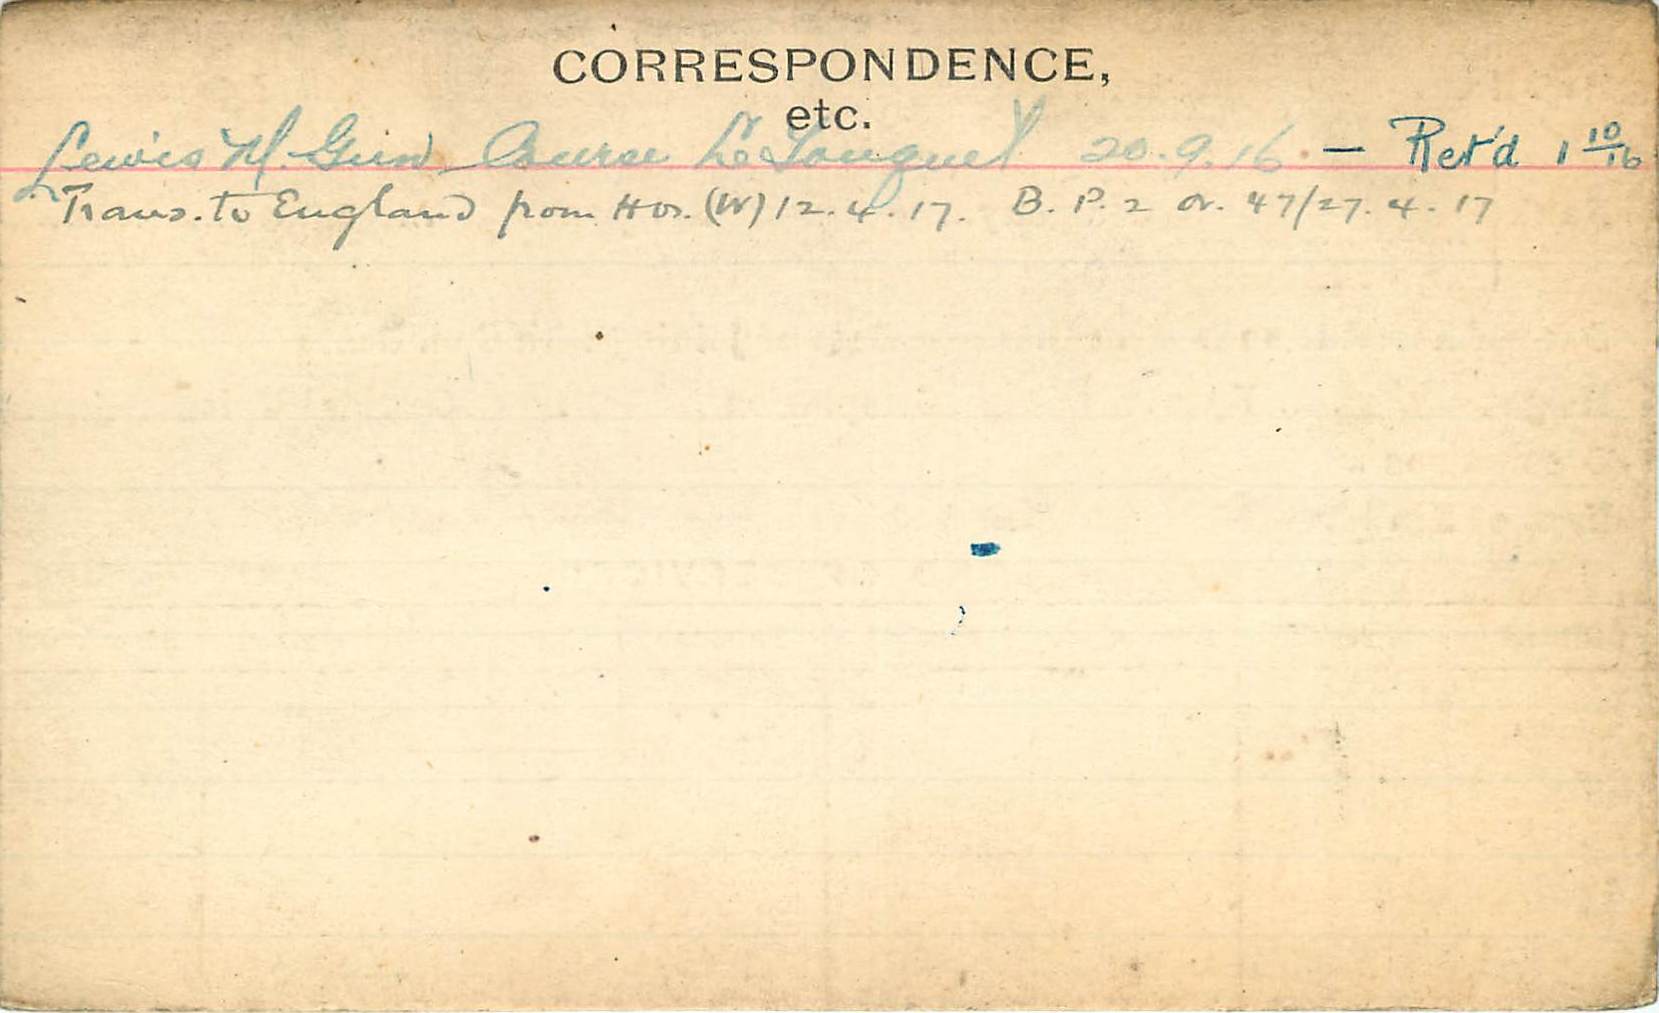 CORRESPONDENCE,
etc.
Lewis M. Gun Course Le Touquet 20.9.16. — Ret'd 1 10/16
Trans. to England from Hos. (W) 12.4.17. B.P. 2 Or. 47/27.4.17